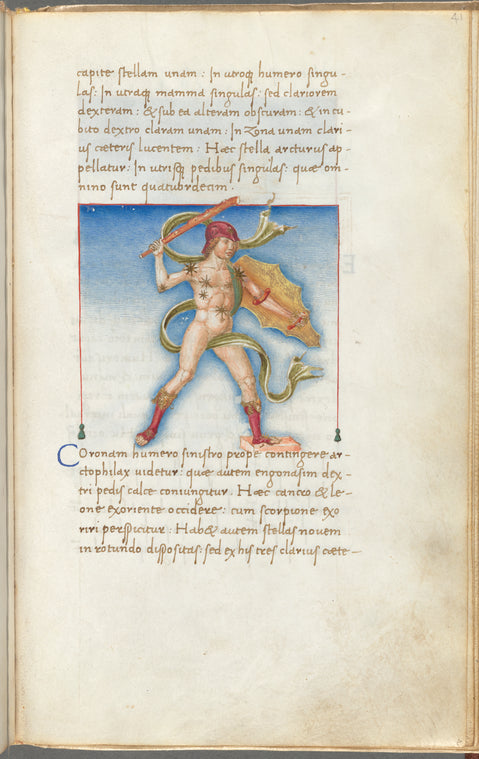 41
capite stellam unam: In utroq; humero singu-
las: In utraq; mamma singulas: sed clariorem
dexteram: & sub ea alteram obscuram: & in cu-
bito dextro claram unam: In Zona unam clari-
us cæteris lucentem: Hæc stella arcturus ap-
pellatur: In utrisq; pedibus singulas: quæ om-
nino sunt quatuordecim.
Coronam humero sinistro prope contingere ar-
ctophilax videtur: quæ autem engonasim dex-
tri pedis calce coniungitur. Hæc cancro & le-
one exoriente occidere: cum scorpione exo
riri perspicitur: Hab& autem stellas novem
in rotundo dispositas: sed ex his tres clarius cæte-